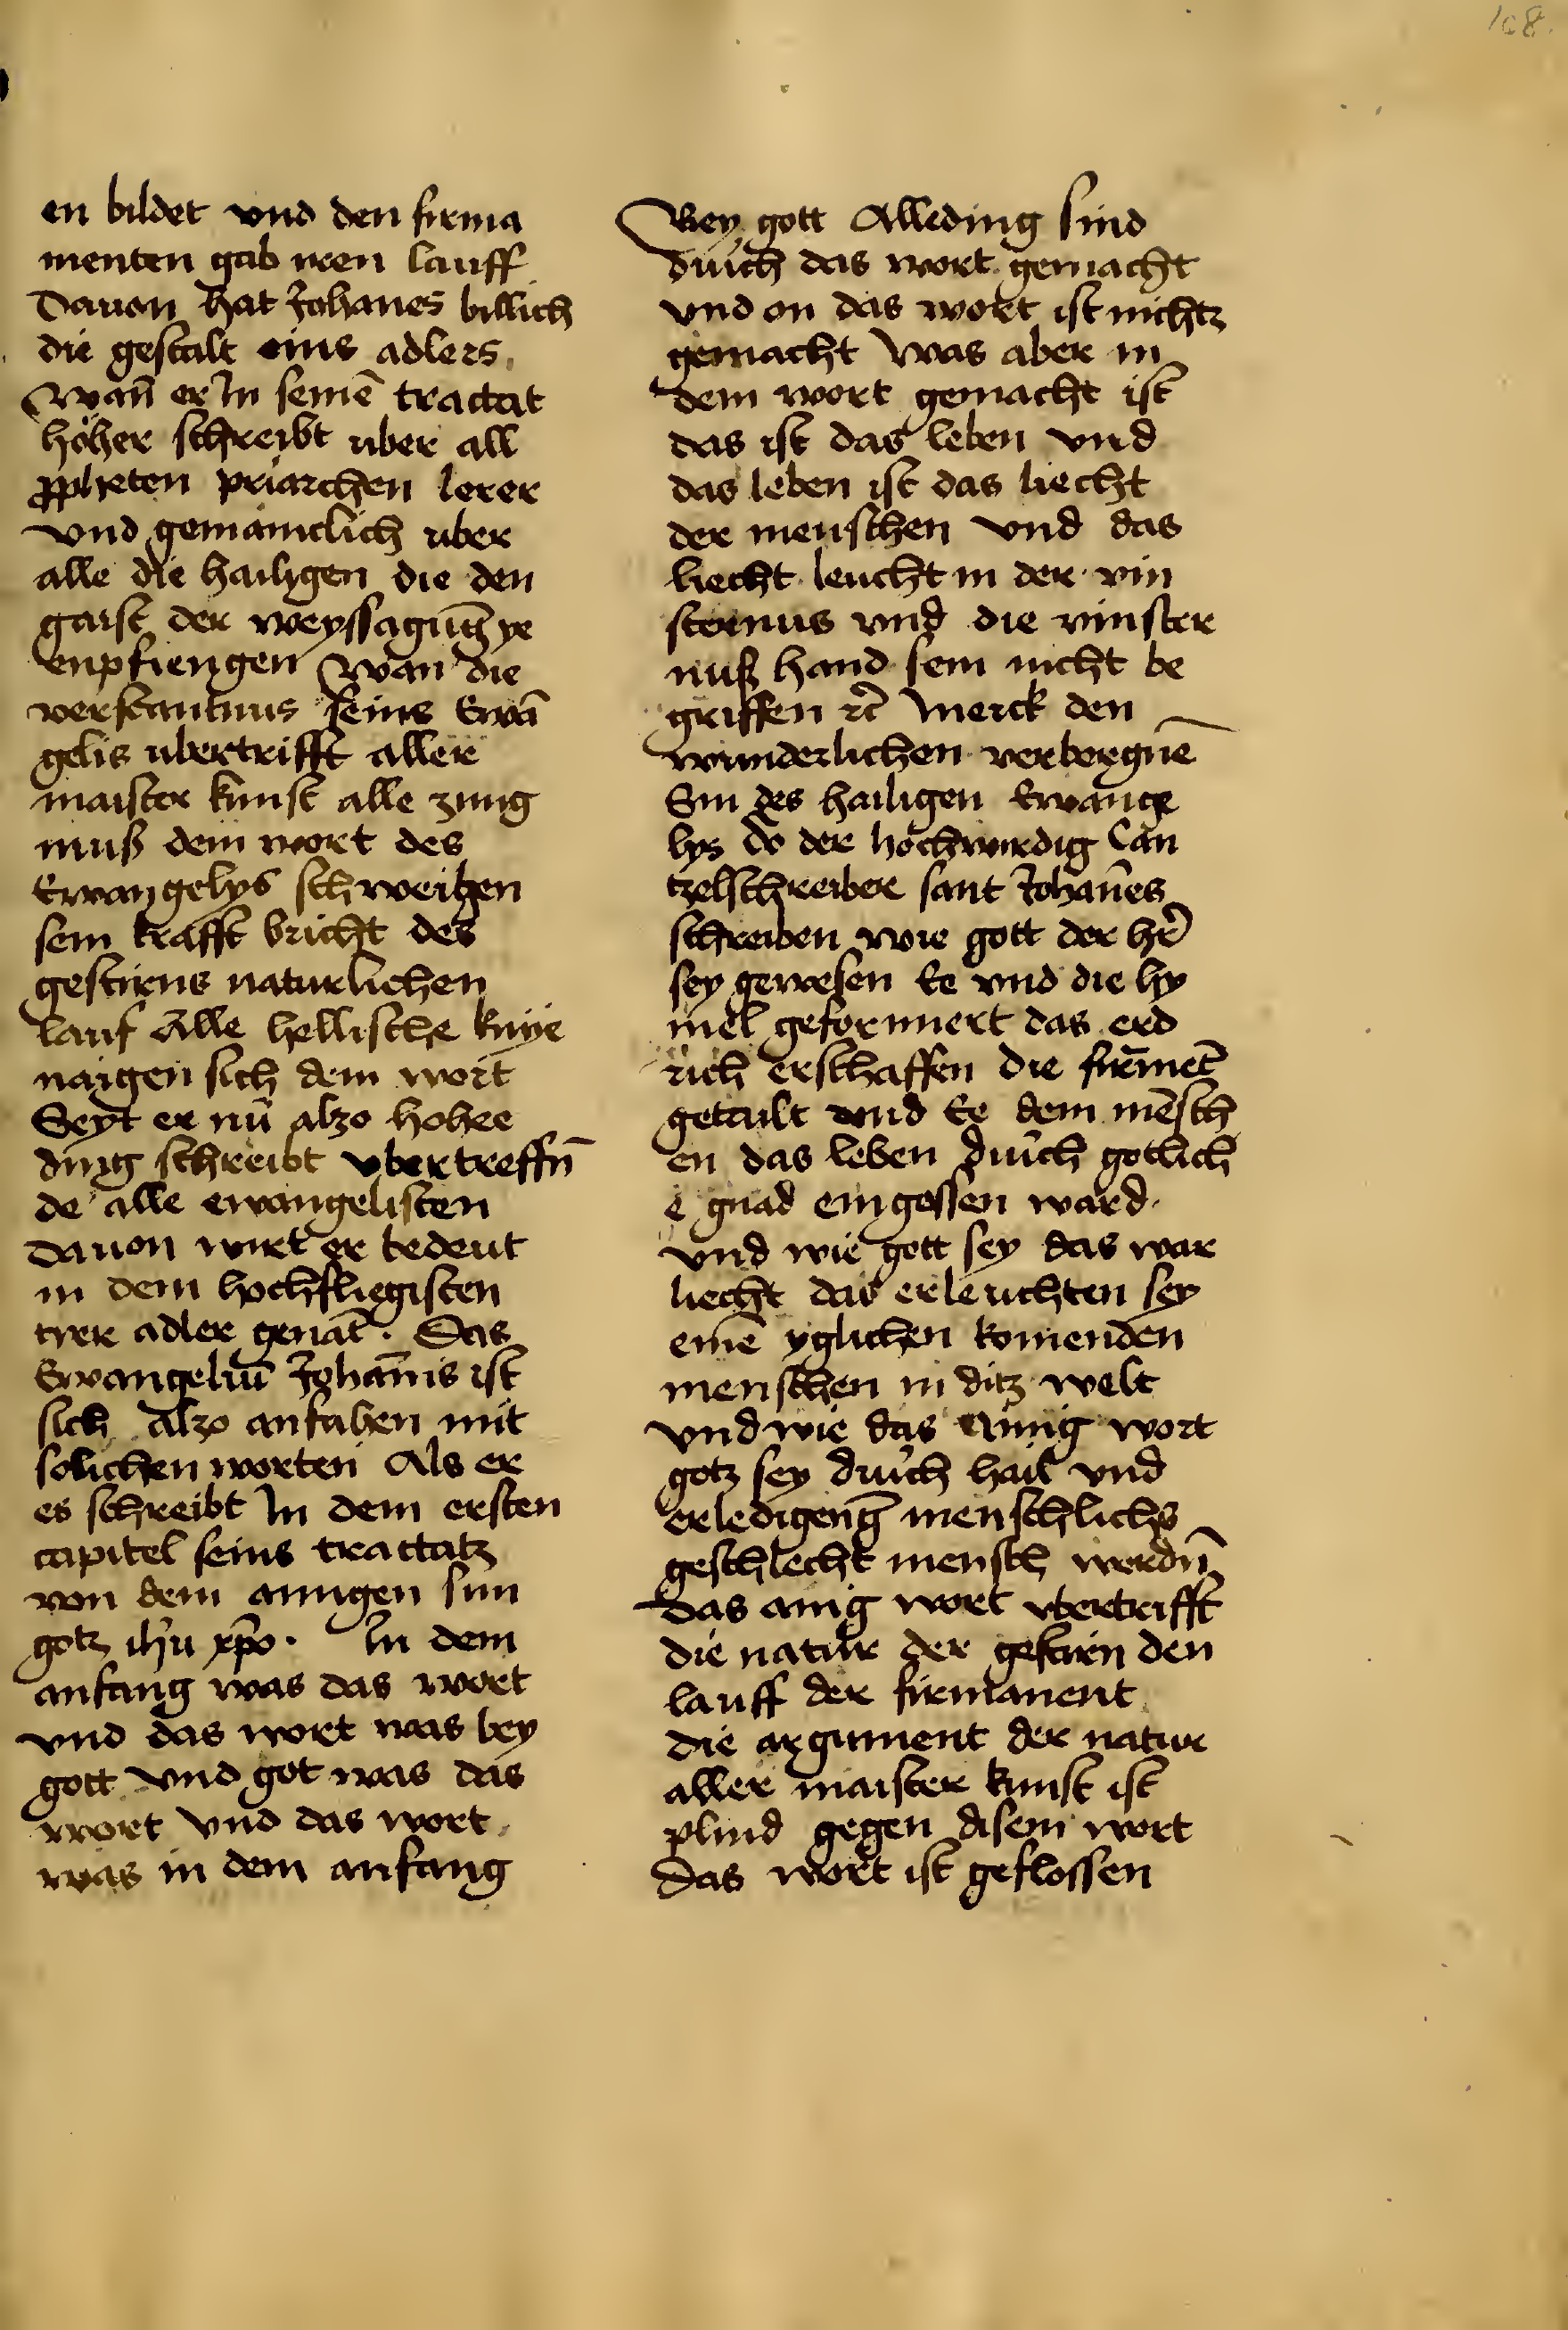 108.
en bildet vnd den firma
menten gab iren lauff
Dauon hat Johanes billich
die gestalt eins adlers
Wan̄ er In seinē tractat
höher schreibt uber all
ꝓpheten priarchen lerer
vnd gemaincklich uber
alle die hailigen die den
gaist der weyssagung ye
enpfiengen Wan die
verstantnus seins Ewā
gelis ubertrifft aller
maister kunst alle zung
muß dem wort des
Ewangelys schweigen
sein krafft bricht des
gestirns naturlichen
lauf Alle hellische knye
naigen sich dem wort
Seyt er nū alzo hohee
ding schreibt vbertreffn̄
de alle ewangelisten
dauon wirt er bedeut
in dem hochfliegisten
tier adler genāt. Das
Ewangeliū Johān̄is ist
sich alzo anfahen mit
solichen worten Als er
es schreibt In dem ersten
capitel seins tractatz
von dem ainigen sun
gotz ihu xp̄o. In dem
anfang was das wort
vnd das wort was bey
gott vnd got was das
wort vnd das wort
was in dem anfang
Bey gott Alleding sind
durch das wort gemacht
vnd on das wort ist nichtz
gemacht Was aber in
dem wort gemacht ist
das ist das leben vnd
das leben ist das liecht
der menschen vnd das
liecht leucht in der vin
sternus vnd die vinster
nuß hand sein nicht be
griffen ꝛc̄ Merck den
wunderlichen verborgnē
Sin des hailigen Ewange
lys do der hochwirdig Can
tzelschreiber sant Johan̄es
schreiben wie gott der hr̄
sey gewesen Ee vnd die hy
mel geformiert das erd
rich erschaffen die firmēt
getailt vnd Ee dem mēsch
en das leben durch gotlich
e gnad eingossen ward.
vnd wie gott sey das war
liecht das erleuchten sey
einē yglichen komenden
menschen in ditz welt
vnd wie das Ainig wort
gotz sey durch hail vnd
erledigenḡ menschlichs
geschlecht mensch wordn̄
Das ainig wort vbertrifft
die natur der gestirn den
lauff der firmanent
die argument der natur
aller maister kunst ist
plind gegen disem wort
Das wort ist geflossen